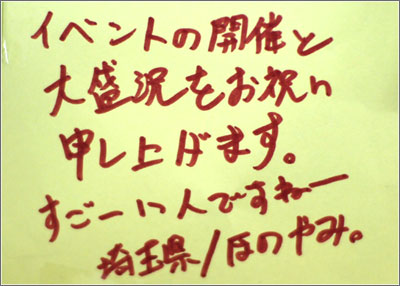 イベントの開催と
大盛況をお祝い
申し上げます。
すごーい人ですねー
埼玉県/ほのやみ。